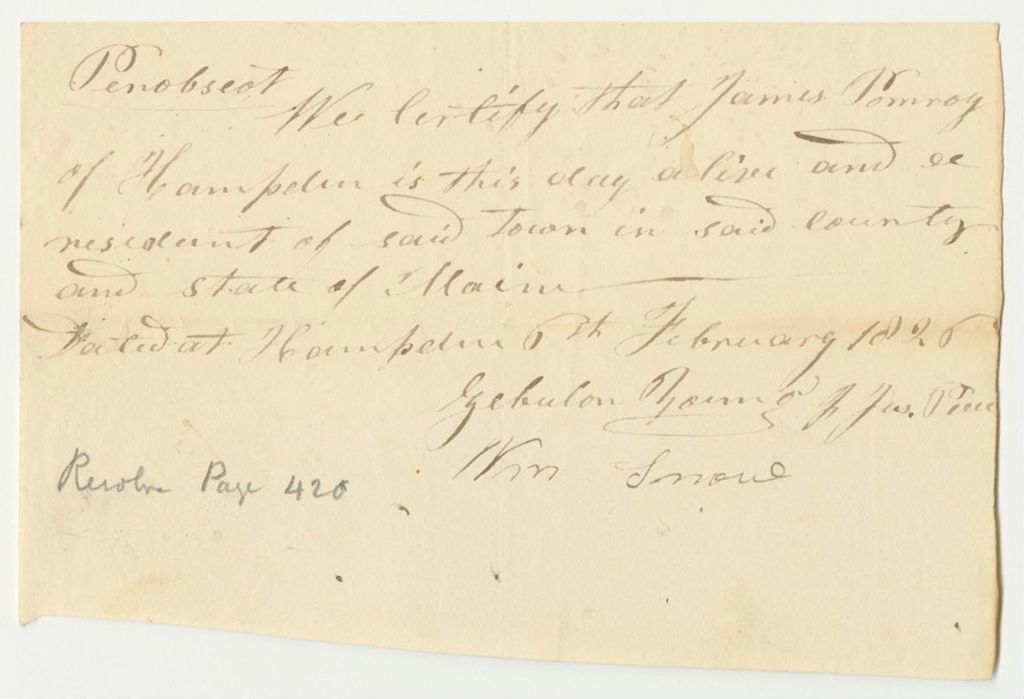 Penobscot
We Certify that James Pomroy
of Hampden is this day alive and a
resident of said Town in said county
and state of Maine
Dated at Hampden 6th February 1826
Zebulon Young Jus. Peace
Wm Snow
Resolve Page 420